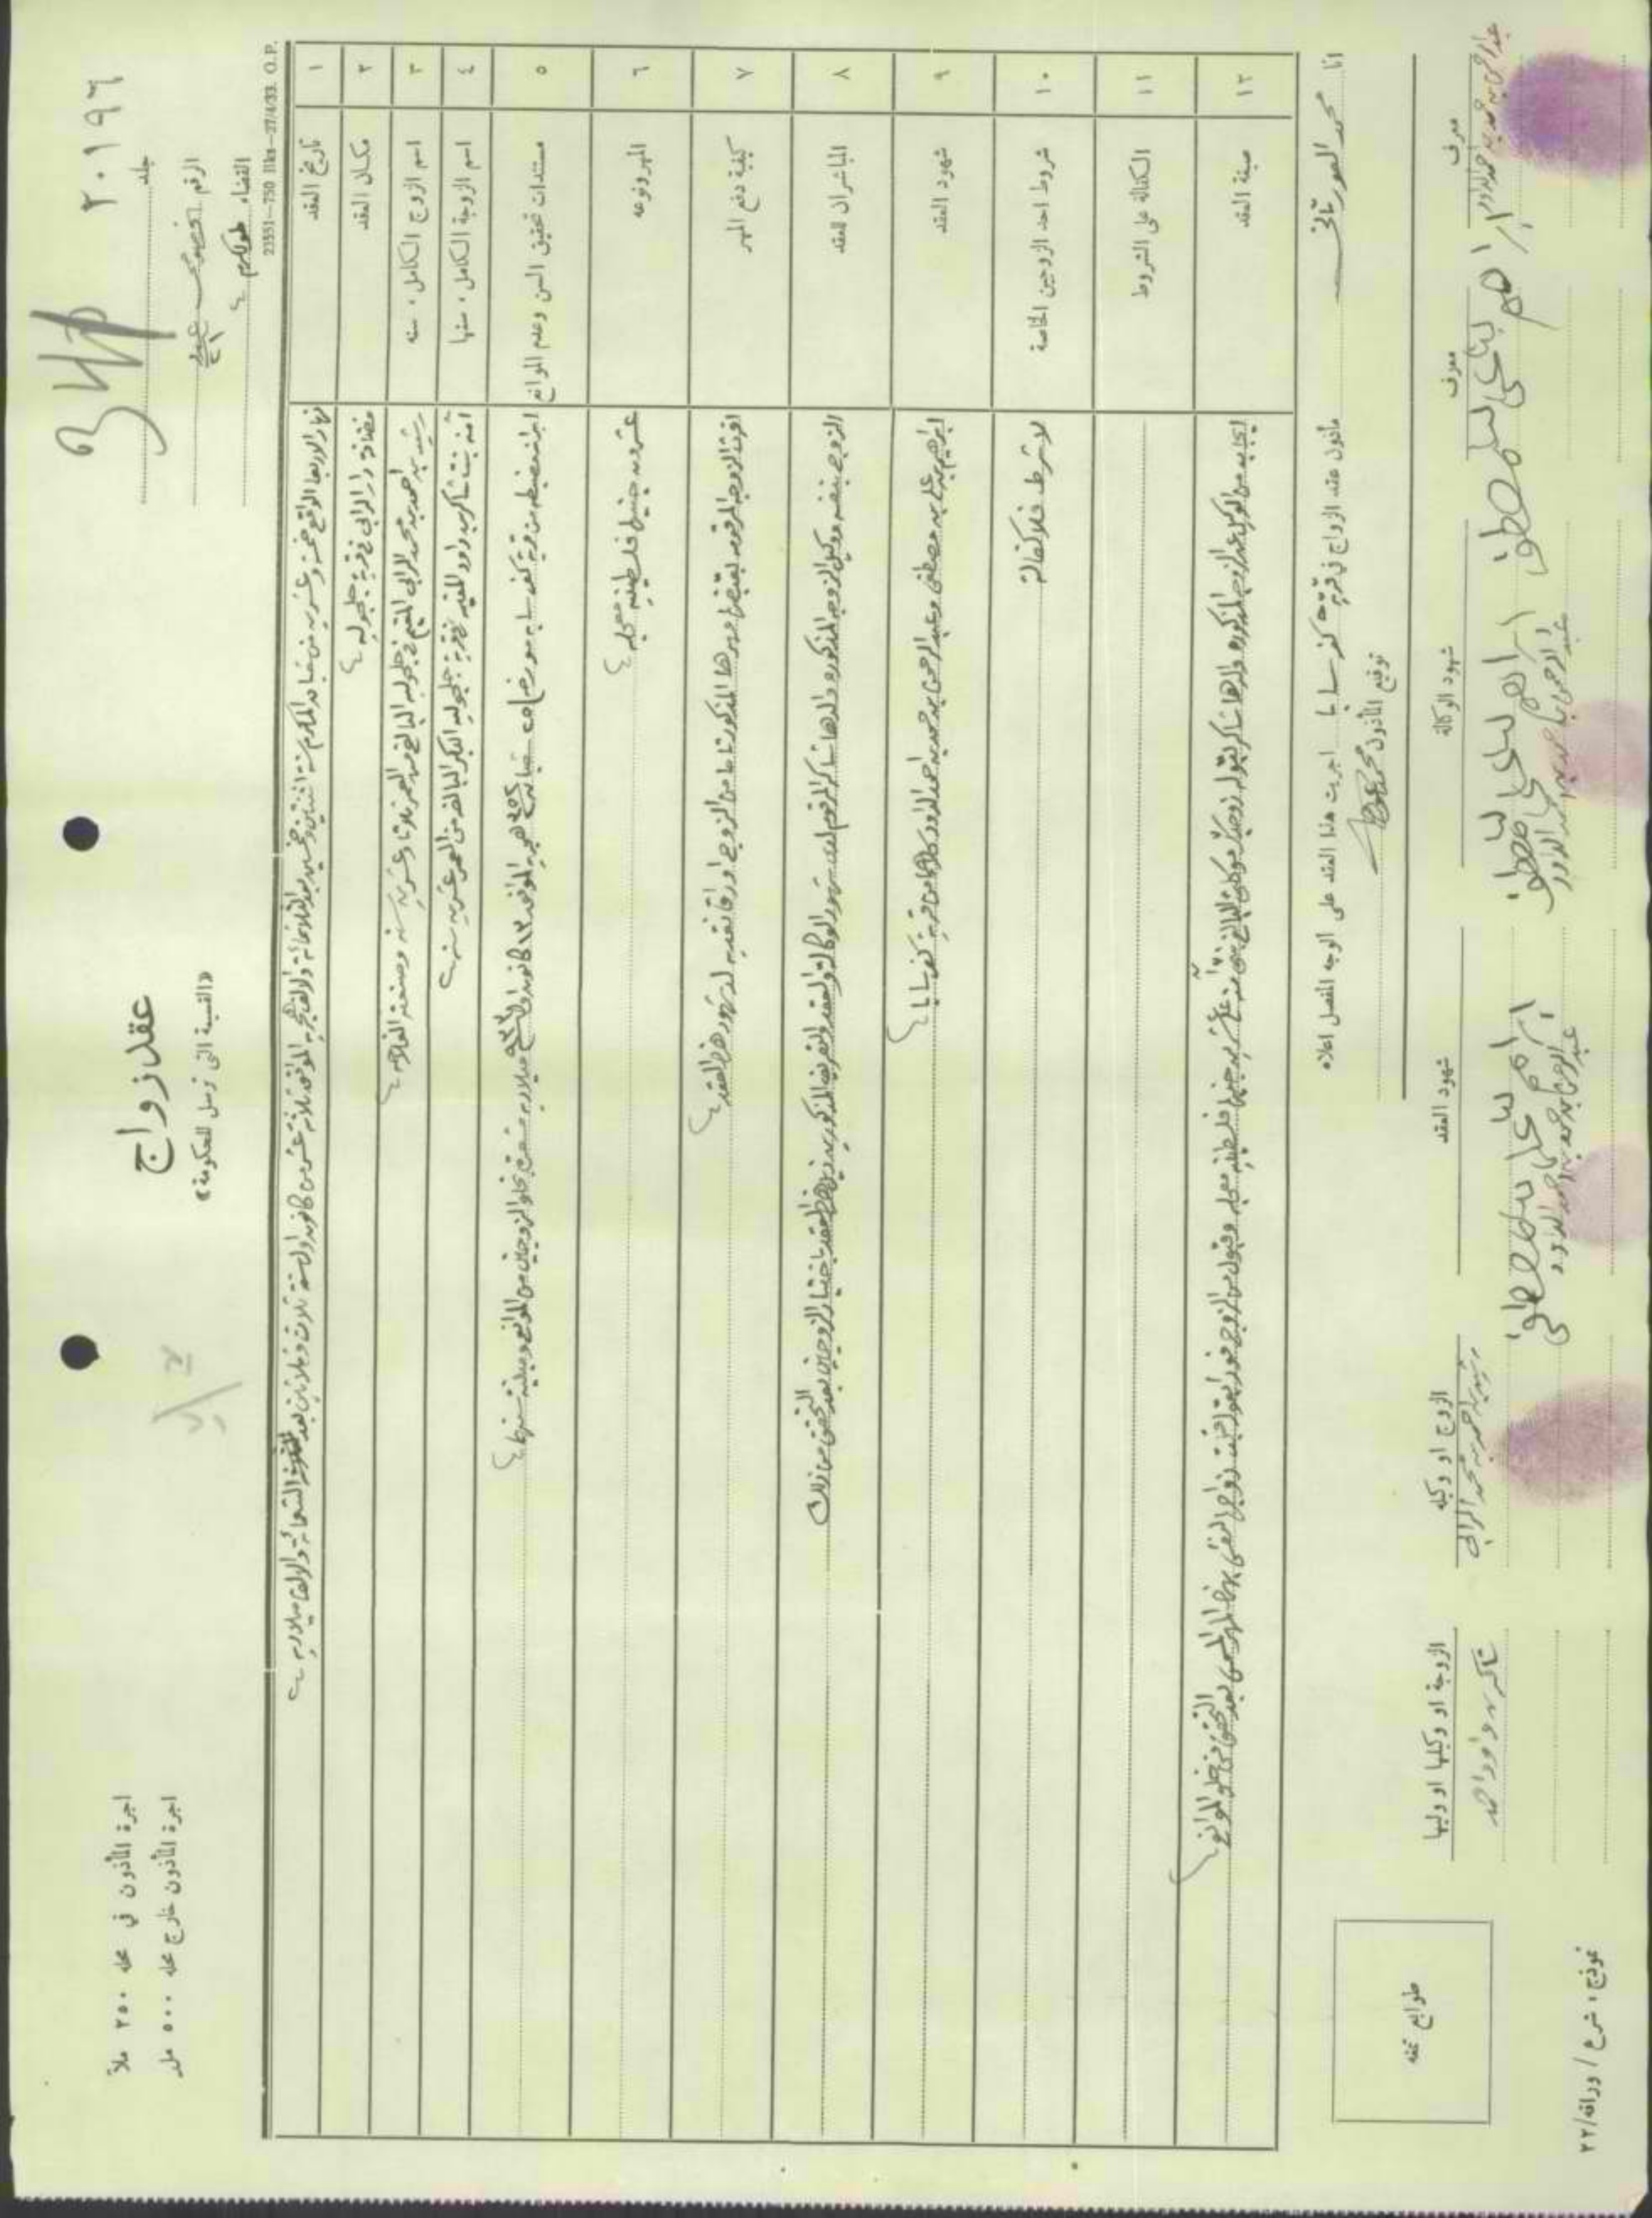 ٢٠١٩٦
جلد
الرقم
القضاء طولكرم
عقد زواج
«القسيمة التي ترسل للحكومة»
اجرة المأذون في محله ٢٥٠ ملاً
اجرة المأذون خارج محله ٥٠٠ مل
23551—750 Bks—27/4/33 O.P.
١ تاريخ العقد نهار الاربعا الواقع خمسة وعشرين من شعبان المكرم سنة اثنتين وخمسين بعد الثلاثمائة والالف هجريه الموافق ثلاثة عشر من كانون اول سنة ثلاث وثلاثين بعد التسعمائة والالف ميلاديه
٢ مكان العقد مضافة دار الرابي في قرية جلجوليه
٣ اسم الزوج الكامل، سنه رشيد بن احمد بن محمد الرابي المقيم في جلجوليه البالغ من العمر ثلاثا وعشرين سنه وصنعته الفلاحه
٤ اسم الزوجة الكامل، سنها آمنه بنت شاكر بن داود المقيمه في قرية جلجوليه البكر البالغه من العمر عشرين سنه
٥ مستندات تحقيق السن وعدم الموانع ابراز مضبطه من قرية كفر سابا مورخه ٢٥ شعبان ٣٥٢ هجريه الموافق ١٣ كانون اول ٩٣٣ ميلاديه تشعر بخلو الزوجين من الموانع ومبلغ سنهما
٦ المهر ونوعه عشرون جنيها فلسطينيه معجله
٧ كيفية دفع المهر اقرت الزوجه المرقومه بقبضها مهرها المذكور تماما من الزوج اوراقا نقديه لدى شهود هذا العقد
٨ المباشران للعقد الزوج بنفسه ووكيل الزوجه المذكوره والدها شاكر المرقوم لدى شهود الوكالة والعقد والتعريف المذكورين في هذا العقد باختيار الزوجين بعد التحقق من ذلك
٩ شهود العقد ابراهيم بن علي بن مصطفى وعبد الرحمن بن حمد بن احمد الداود كلاهما من قرية كفر سابا
١٠ شروط احد الزوجين الخاصة لا شرط فلا كفالة
١١ الكفالة على الشروط
١٢ صيغة العقد ايجاب من الوكيل عن الزوجه المذكوره والدها شاكر بقوله زوجتك موكلتي البالغ بنتي آمنه على عشرين جنيها فلسطينيه معجله وقبول من الزوج فورا بقوله قبلت زواجها لنفسي بهذا المهر المسمى بعد التحقق من خلو الموانع
انا محمد العورتاني مأذون عقد الزواج في قرية كفر سابا اجريت هذا العقد على الوجه المفصل اعلاه
توقيع المأذون
معرف
عبد الرحمن بن حمد بن احمد الداود
معرف
ابراهيم بن علي بن مصطفى
شهود الوكالة
ابراهيم بن علي بن مصطفى
عبد الرحمن بن حمد بن احمد الداود
شهود العقد
ابراهيم بن علي بن مصطفى
عبد الرحمن بن حمد بن احمد الداود
الزوج او وكيله
رشيد بن احمد بن محمد الرابي
الزوجة او وكيلها او وليها
شاكر بن داود احمد
طوابع تمغه
نموذج، شرع / ورافه/٢٢